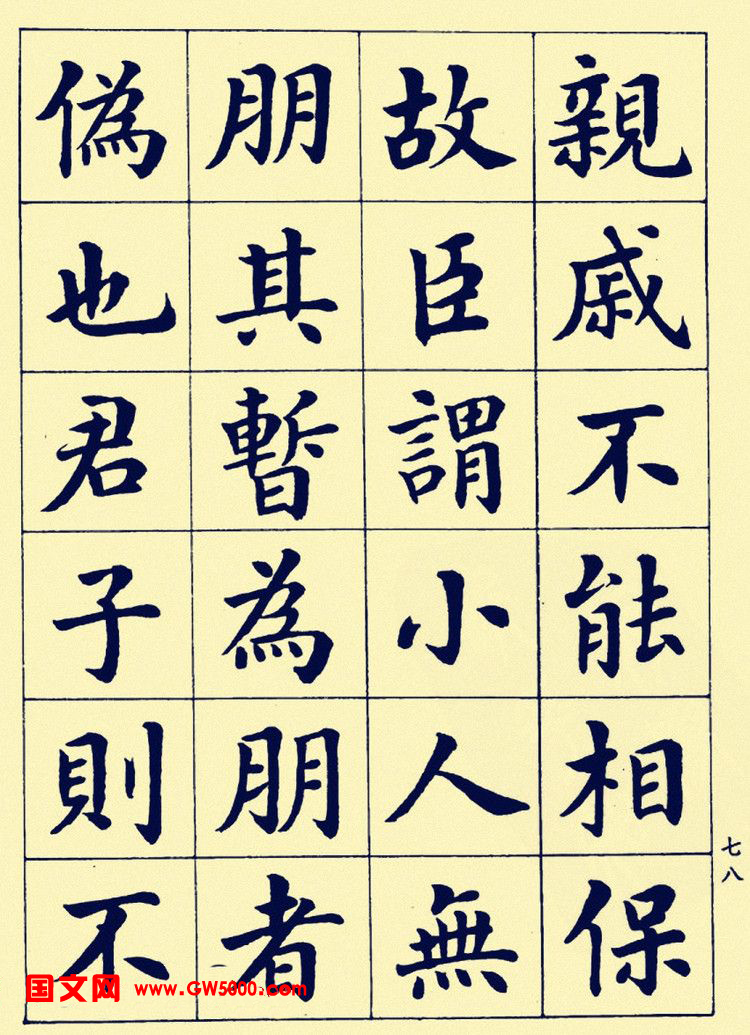 親戚不能相保
故臣謂小人無
朋其暫為朋者
偽也君子則不
七八
国文网 www.GW5000.com